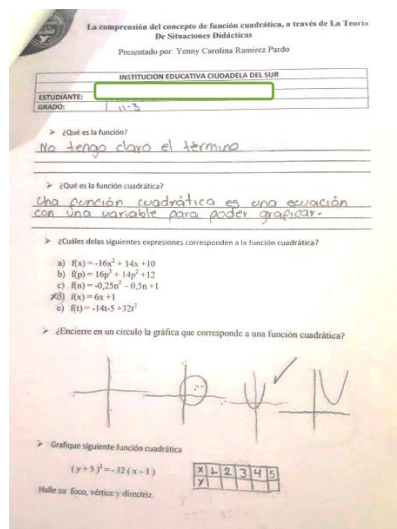 La comprensión del concepto de función cuadrática, a través de La Teoría
De Situaciones Didácticas
Presentado por: Yenny Carolina Ramírez Pardo
INSTITUCION EDUCATIVA CIUDADELA DEL SUR
ESTUDIANTE:
GRADO: 11-3
➢ ¿Qué es la función?
No tengo claro el término
➢ ¿Qué es la función cuadrática?
Una función cuadrática es una ecuación
con una variable para poder graficar.
➢ ¿Cuáles delas siguientes expresiones corresponden a la función cuadrática?
a) f(x) = -16x² + 14x +10
b) f(p) = 16p³ + 14p² +12
c) f(n) = -0,25n² – 0,5n +1
d) f(x) = 6x +1
e) f(t) = -14t-5 +32t²
➢ ¿Encierre en un circulo la gráfica que corresponde a una función cuadrática?
➢ Grafique siguiente función cuadrática
( y + 5 )² = - 12 ( x – 1 )
X 1 2 3 4 5
Y
Halle su foco, vértice y directriz.